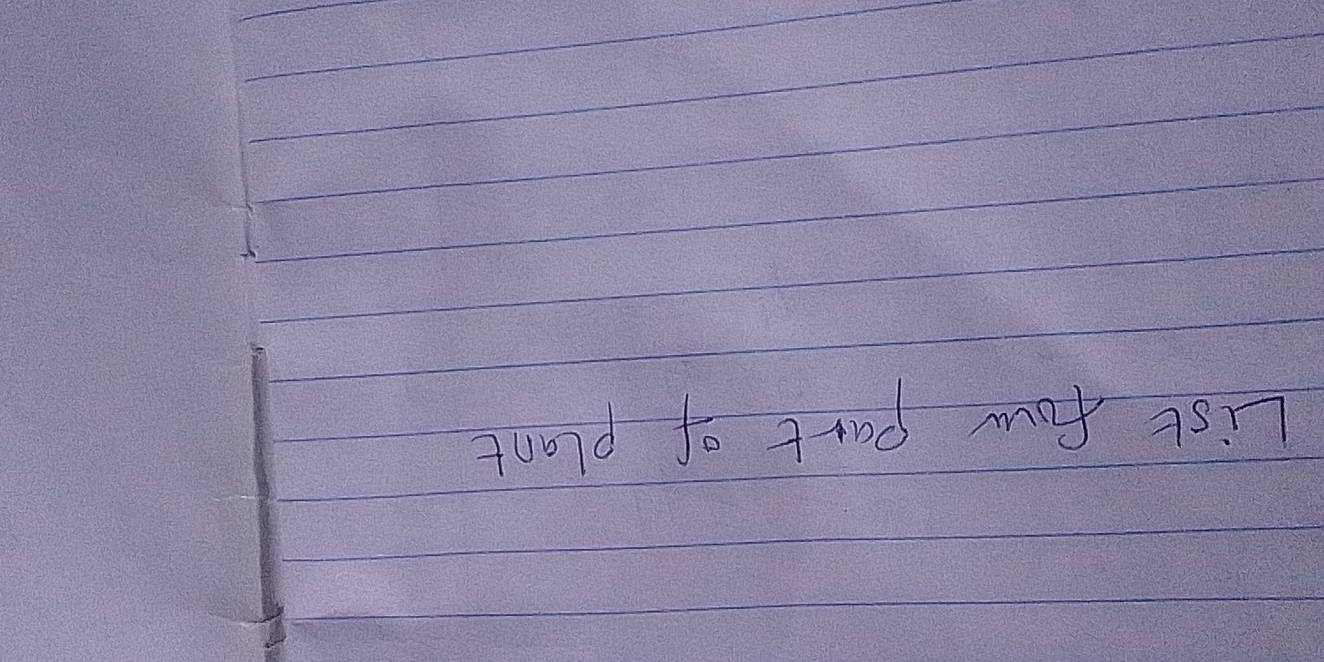 List four part of plant